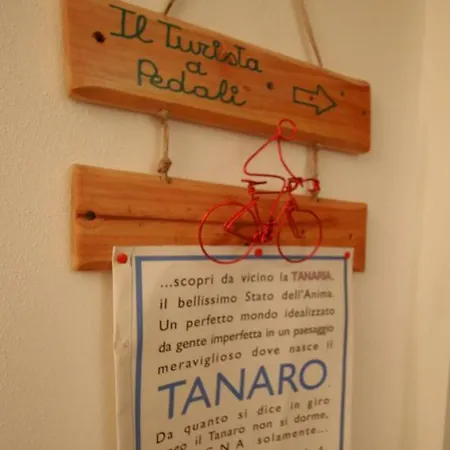 Il Turista
a
Pedali
...scopri da vicino la TANARIA,
il bellissimo Stato dell'Anima.
Un perfetto mondo idealizzato
da gente imperfetta in un paesaggio
meraviglioso dove nasce il
TANARO.
Da quanto si dice in giro
il Tanaro non si dorme,
solamente...